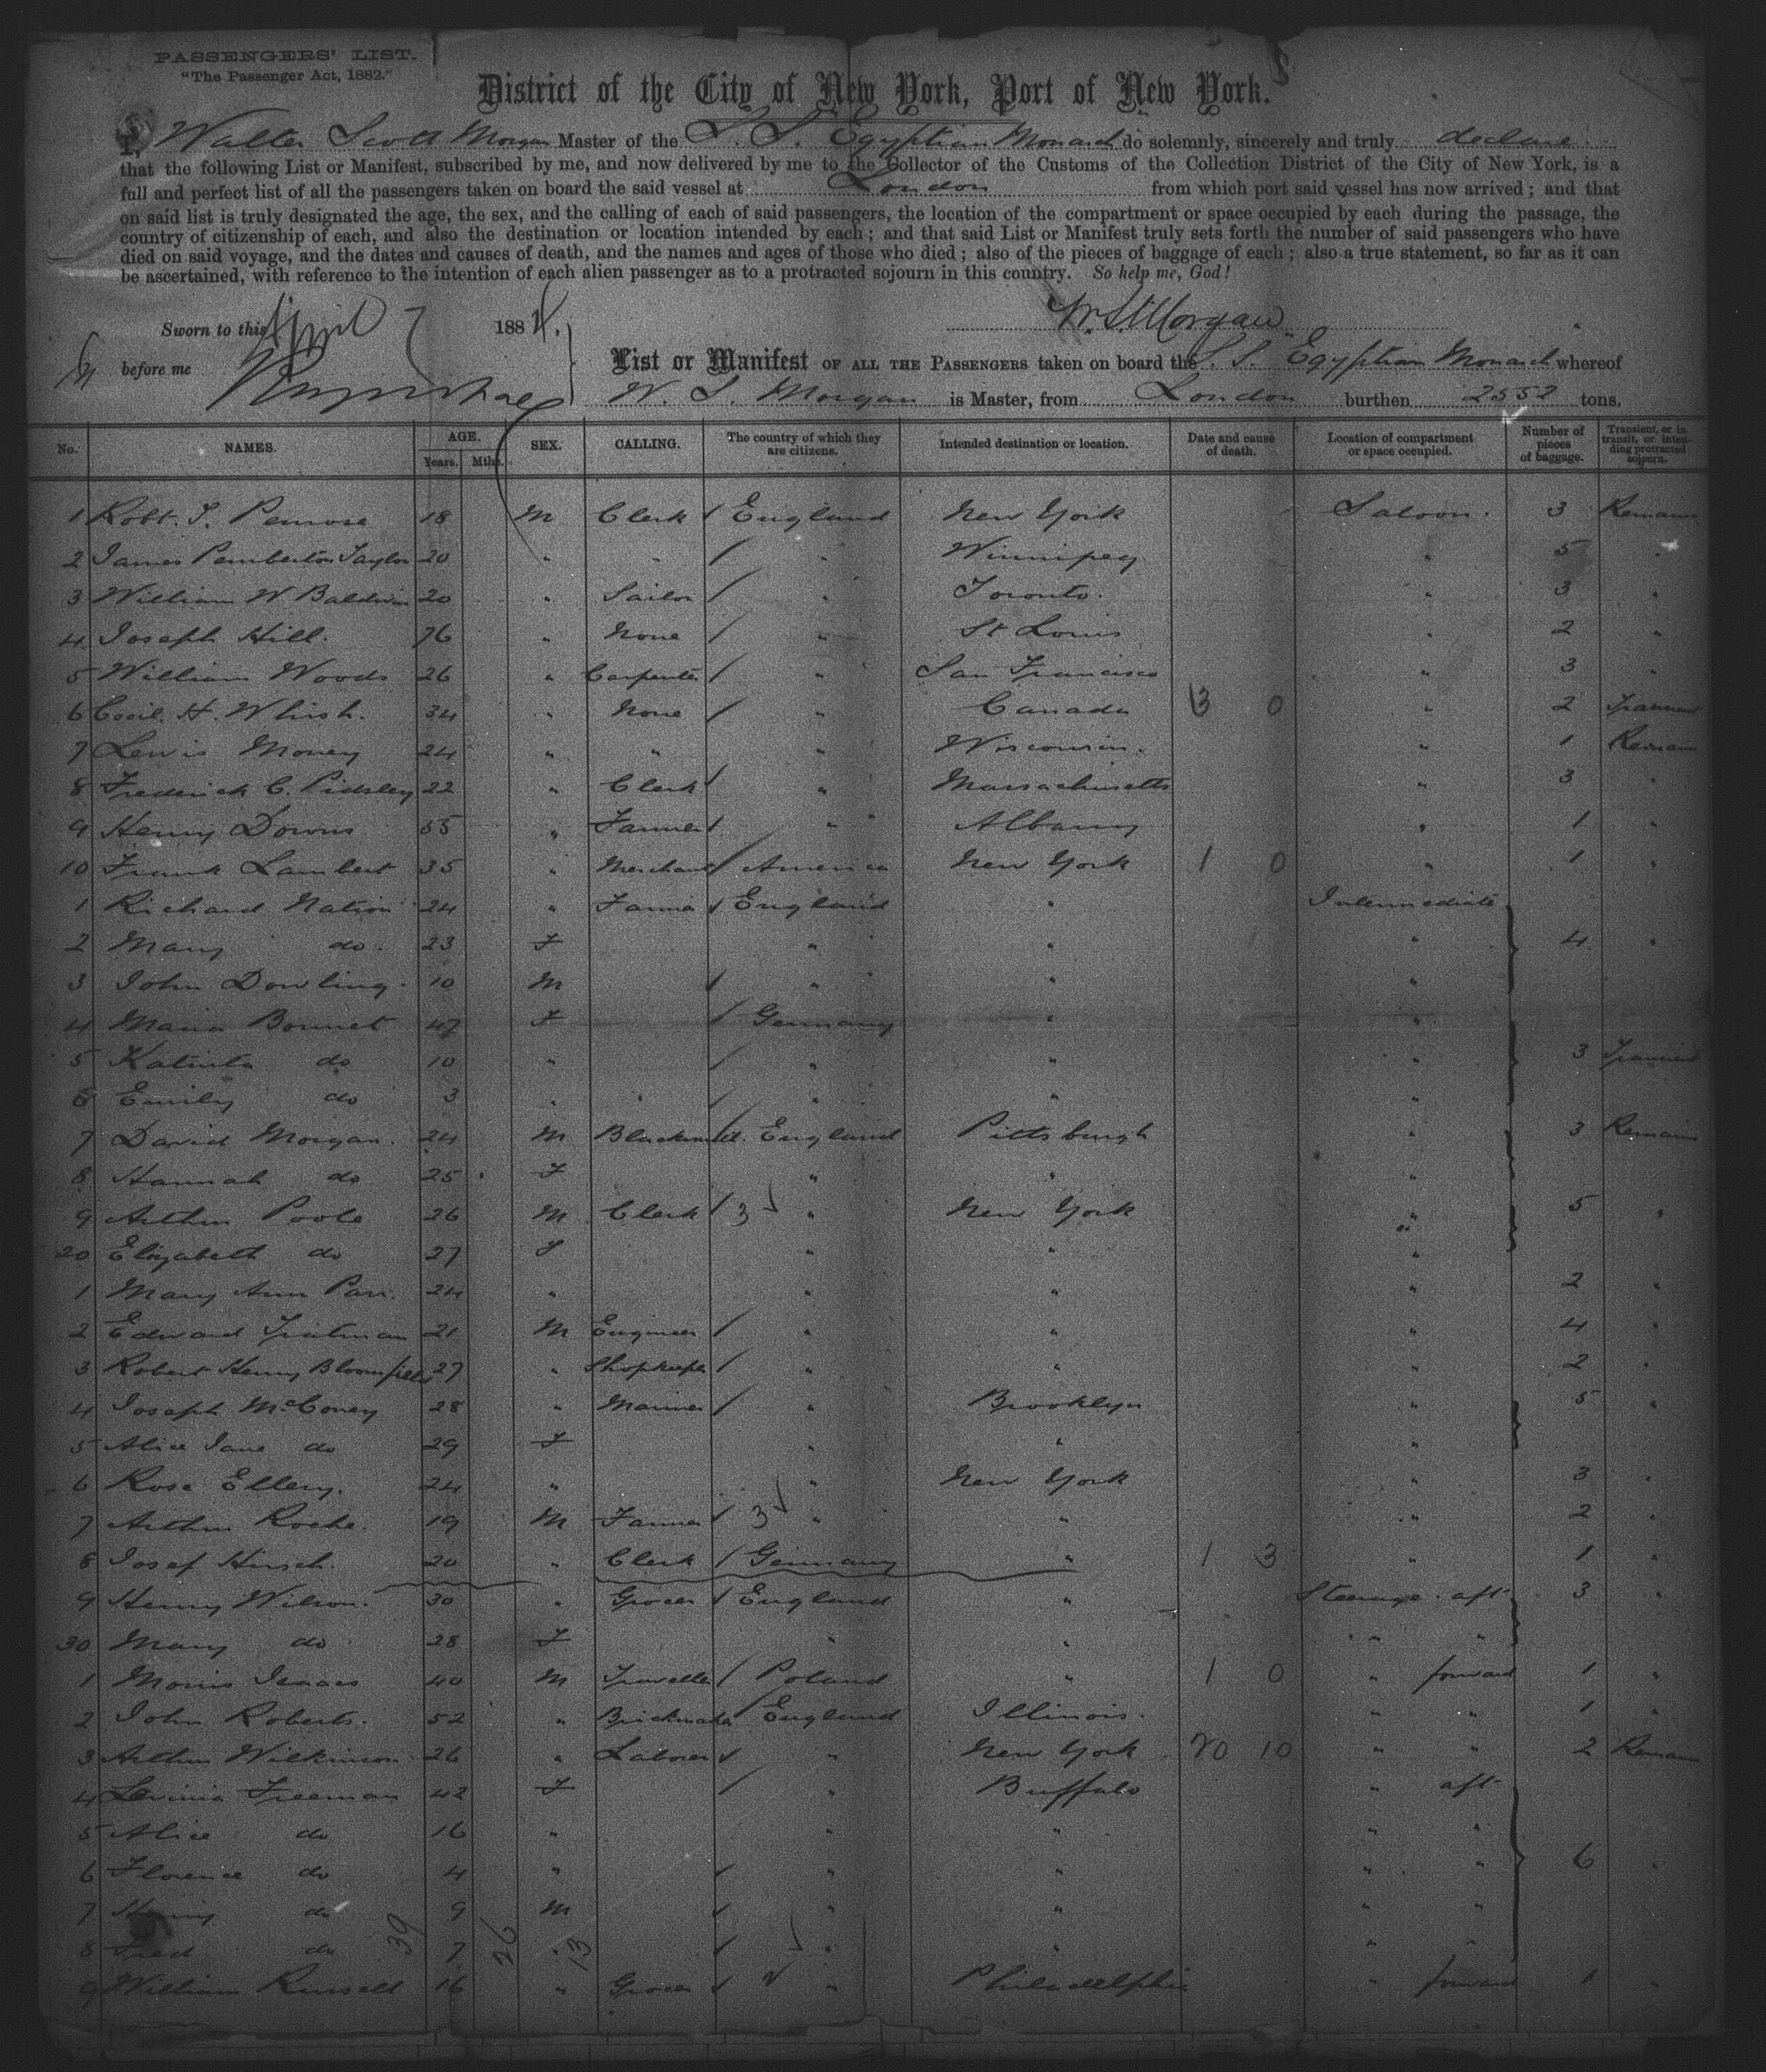 PASSENGERS' LIST.
"The Passenger Act, 1882."
District of the City of New York, Port of New York.
I, Walter Scott Morgan Master of the S. S. Egyptian Monarch do solemnly, sincerely and truly declare
that the following List or Manifest, subscribed by me, and now delivered by me to the Collector of the Customs of the Collection District of the City of New York, is a
full and perfect list of all the passengers taken on board the said vessel at London from which port said vessel has now arrived; and that
on said list is truly designated the age, the sex, and the calling of each of said passengers, the location of the compartment or space occupied by each during the passage, the
country of citizenship of each, and also the destination or location intended by each; and that said List or Manifest truly sets forth the number of said passengers who have
died on said voyage, and the dates and causes of death, and the names and ages of those who died; also of the pieces of baggage of each; also a true statement, so far as it can
be ascertained, with reference to the intention of each alien passenger as to a protracted sojourn in this country. So help me, God!
Sworn to this April 7 1884. W. S. Morgan
before me
List or Manifest OF ALL THE PASSENGERS taken on board the S. S. Egyptian Monarch whereof
W. S. Morgan is Master, from London burthen 2552 tons.
No. NAMES. AGE. Years. Mths. SEX. CALLING. The country of which they are citizens. Intended destination or location. Date and cause of death. Location of compartment or space occupied. Number of pieces of baggage. Transient, or in transit, or intending protracted sojourn.
1 Robt. T. Penrose 18 M Clerk England New York Saloon. 3 Remain
2 James Pemberton Taylor 20 " " " Winnipeg " 5 "
3 William W Baldwin 20 " Sailor " Toronto. " 3 "
4 Joseph Hill. 76 " None " St Louis " 2 "
5 William Woods 26 " Carpenter " San Francisco " 3 "
6 Cecil. H. Whish. 34 " None " Canada 3 0 " 2 Transient
7 Lewis Money 24 " " " Wisconsin. " 1 Remain
8 Frederick C. Pidsley 22 " Clerk " Massachusetts " 3 "
9 Henry Downs 55 " Farmer " Albany " 1 "
10 Frank Lambert 35 " Merchant America New York 1 0 " 1 "
1 Richard Nation 24 " Farmer England " Intermediate
2 Mary do. 23 F " " " 4 "
3 John Dowling 10 M " " "
4 Maria Bonnet 47 F Germany " "
5 do 10 " " " " 3 Transient
6 Emily do 3 " " " " "
7 David Morgan. 24 M Blacksmith. England Pittsburgh " 3 Remain
8 Hannah do 25 F " " "
9 Arthur Poole 26 M Clerk 3 " New York " 5 "
20 Elizabeth do 27 F " " "
1 Mary Ann Parr. 24 " " " " 2 "
2 Edward 21 M Engineer " " " 4 "
3 Robert Henry Bloomfield 27 " Shopkeeper " " " 2 "
4 Joseph McConey 28 " Mariner " Brooklyn " 5 "
5 Alice Jane do 29 F " " "
6 Rose Ellery. 24 " " New York " 3 "
7 Arthur Roche. 19 M Farmer 3 " " " 2 "
8 Josef Hirsch. 20 " Clerk Germany " 1 3 " 1 "
9 Henry Wilson. 30 " Grocer England " Steerage. aft 3 "
30 Mary do 28 F " " " "
1 Morris Isaacs 40 M Traveller Poland " 1 0 " forward 1 "
2 John Roberts. 52 " Brickmaker England Illinois. " " 1 "
3 Arthur Wilkinson 26 " Laborer " New York 20 10 " " 2 Remain
4 Lavinia Freeman 42 F " Buffalo " aft
5 Alice do 16 " " " " "
6 Florence do 4 " " " " " 6 "
7 do 9 M " " " "
8 Fred do 7 " " " " "
9 William Russell 16 " Grocer " Philadelphia " forward 1 "
39 26 13